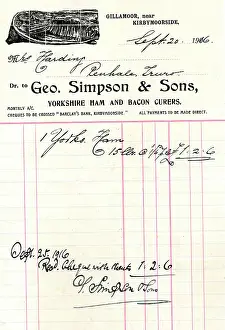 GILLAMOOR, near
KIRBYMOORSIDE.
Sept. 20. 1916
Mrs Harding
Penhale, Truro
Dr. to Geo. Simpson & Sons,
YORKSHIRE HAM AND BACON CURERS.
MONTHLY A/C.
CHEQUES TO BE CROSSED "BARCLAY'S BANK, KIRBYMOORSIDE." ALL PAYMENTS TO BE MADE DIRECT.
1 Yorks. Ham
15 lbs. @ 1 - 2 - 6
Sept. 25. 1916
Recd Cheque with thanks 1 - 2 - 6
G. Simpson & Sons